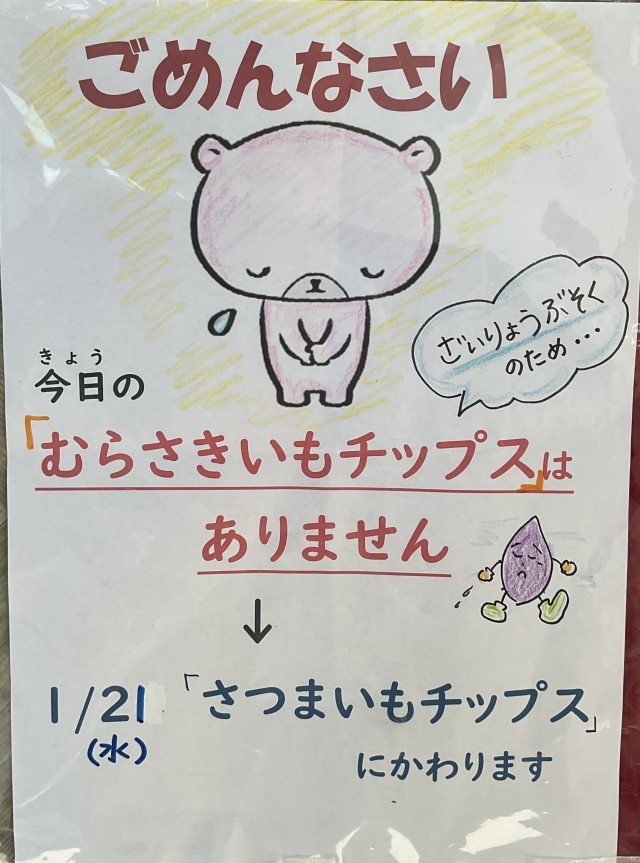 ごめんなさい
ざいりょうぶそく
のため・・・
きょう
今日の
「むらさきいもチップス」は
ありません
↓
1/21 「さつまいもチップス」
(水)
にかわります